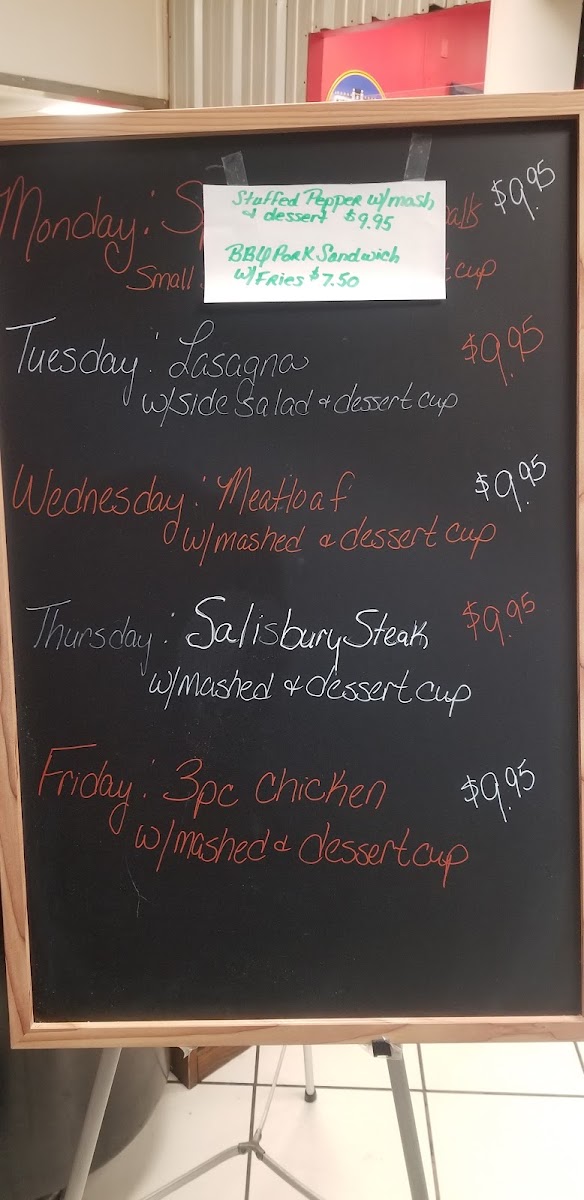 Stuffed Pepper w/mash
& dessert $9.95
BBQ Pork Sandwich
w/Fries $7.50
Monday: $9.95
Small cup
Tuesday: Lasagna $9.95
w/side salad & dessert cup
Wednesday: Meatloaf $9.95
w/mashed & dessert cup
Thursday: Salisbury Steak $9.95
w/mashed & dessert cup
Friday: 3pc chicken $9.95
w/mashed & dessert cup